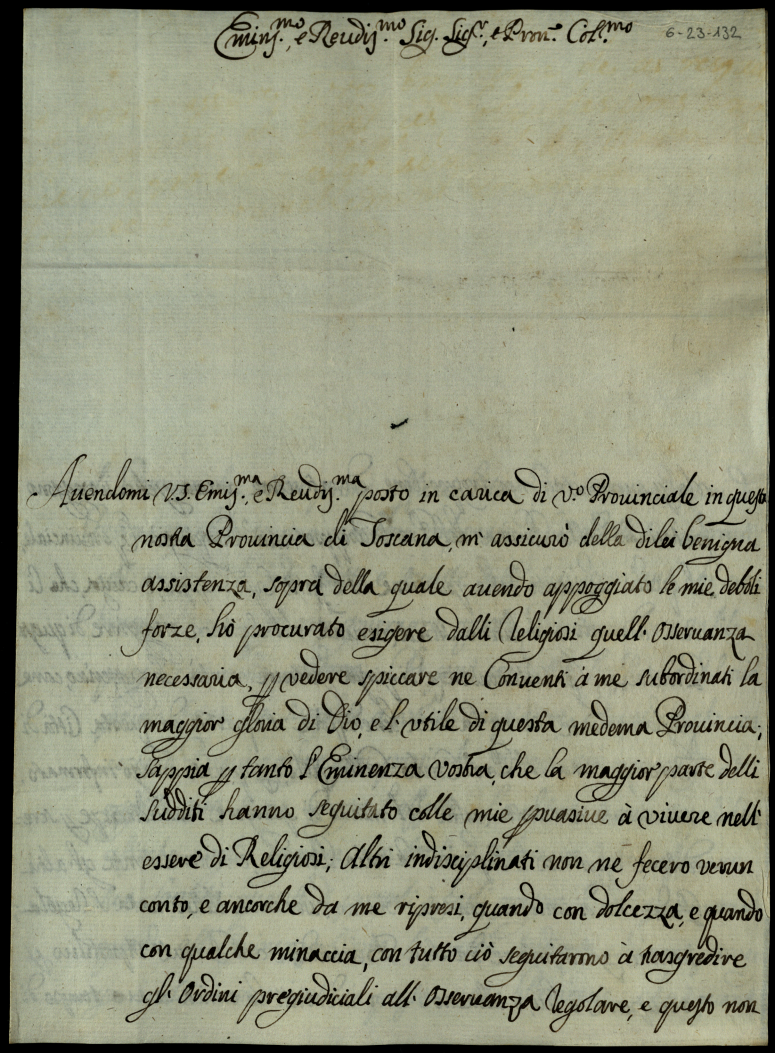 Emins.mo, e Reudis.mo Sig. Sig.r, e Pron.e Col.mo
6-23-132
Auendomi V.S. Emis.ma, e Reudis.ma posto in carica di V.o Prouinciale in questa
nostra Prouincia di Toscana, m' assicurò della dilei benigna
assistenza, sopra della quale auendo appoggiato le mie deboli
forze, hò procurato esigere dalli Religiosi quell' osseruanza
necessaria, p vedere spiccare ne Conuenti à me subordinati la
maggior gloria di Dio, e l' vtile di questa medema Prouincia;
Sappia p tanto l' Eminenza Vostra, che la maggior parte delli
sudditi hanno seguitato colle mie psuasiue à viuere nell'
essere di Religiosi; Altri indisciplinati non ne fecero verun
conto, e ancorche da me ripresi, quando con dolcezza, e quando
con qualche minaccia, con tutto ciò seguitarono à trasgredire
gl' Ordini pregiudiciali all' Osseruanza Regolare, e questo non